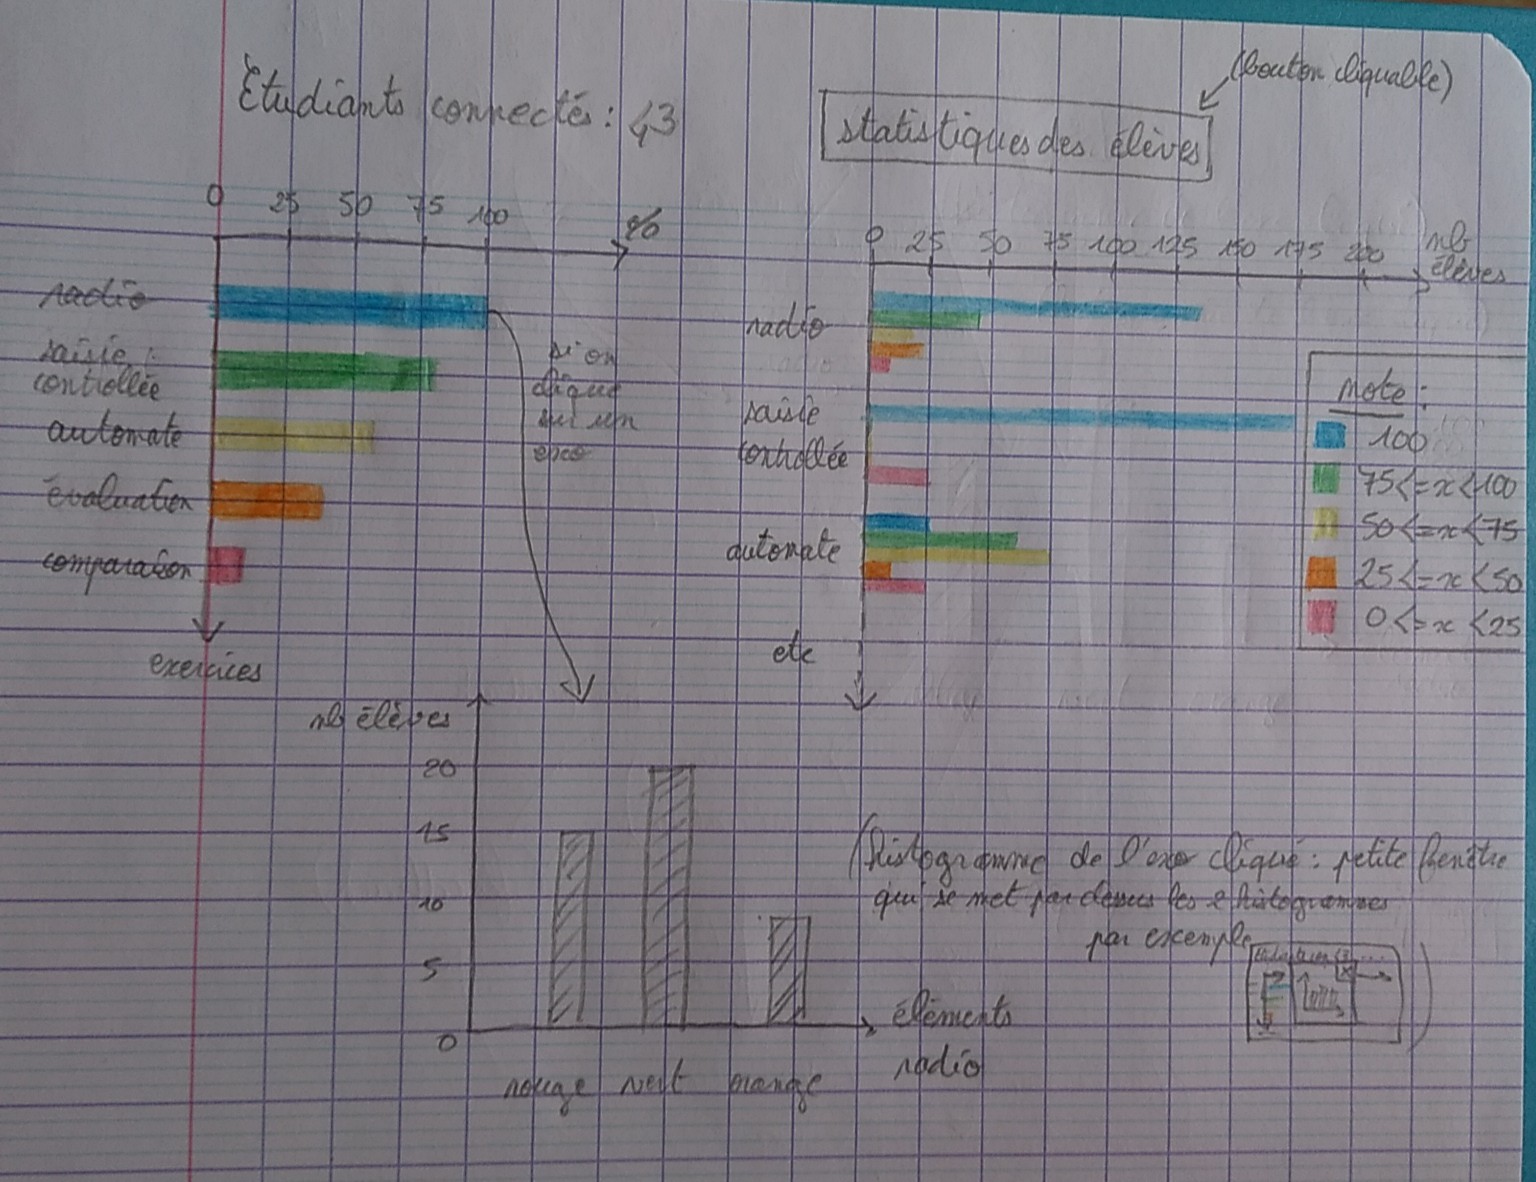 Etudiants connectés : 43
(bouton cliquable)
statistiques des élèves
0 25 50 75 100 %
radio
saisie :
controllée
automate
évaluation
comparaison
exercices
si on
clique
sur un
exo
0 25 50 75 100 125 150 175 200 nb
élèves
radio
saisie
controllée
automate
etc
note :
100
75<=x<100
50<=x<75
25<=x<50
0<=x<25
nb élèves
20
15
10
5
0
rouge vert orange
éléments
radio
(histogramme de l'exo cliqué : petite fenêtre
qui se met par dessus les 2 histogrammes
par exemple
)